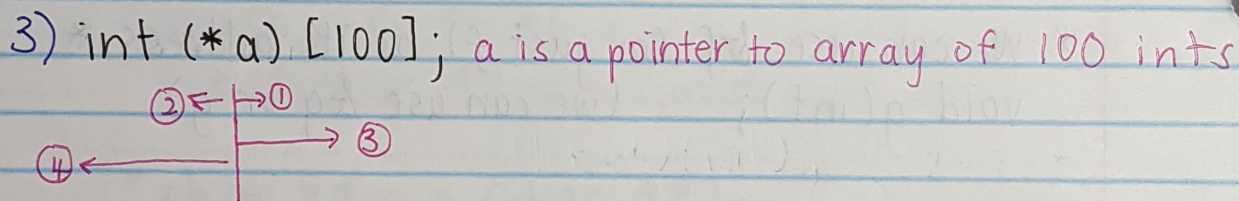 3) int (*a) [100]; a is a pointer to array of 100 ints
② ← → ①
→ ③
④ ←